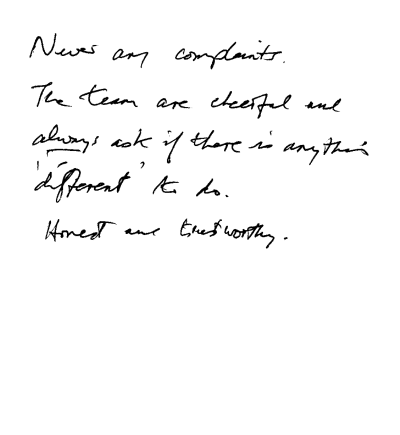 Never any complaints.
The team are cheerful and
always ask if there is anything
'different' to do.
Honest and trustworthy.